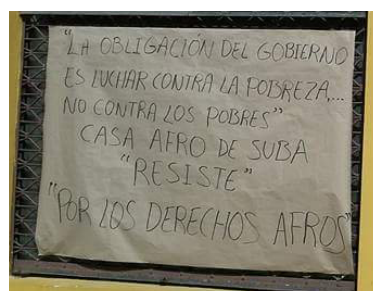 "LA OBLIGACIÓN DEL GOBIERNO
ES LUCHAR CONTRA LA POBREZA,...
NO CONTRA LOS POBRES"
CASA AFRO DE SUBA
"RESISTE"
"POR LOS DERECHOS AFROS"